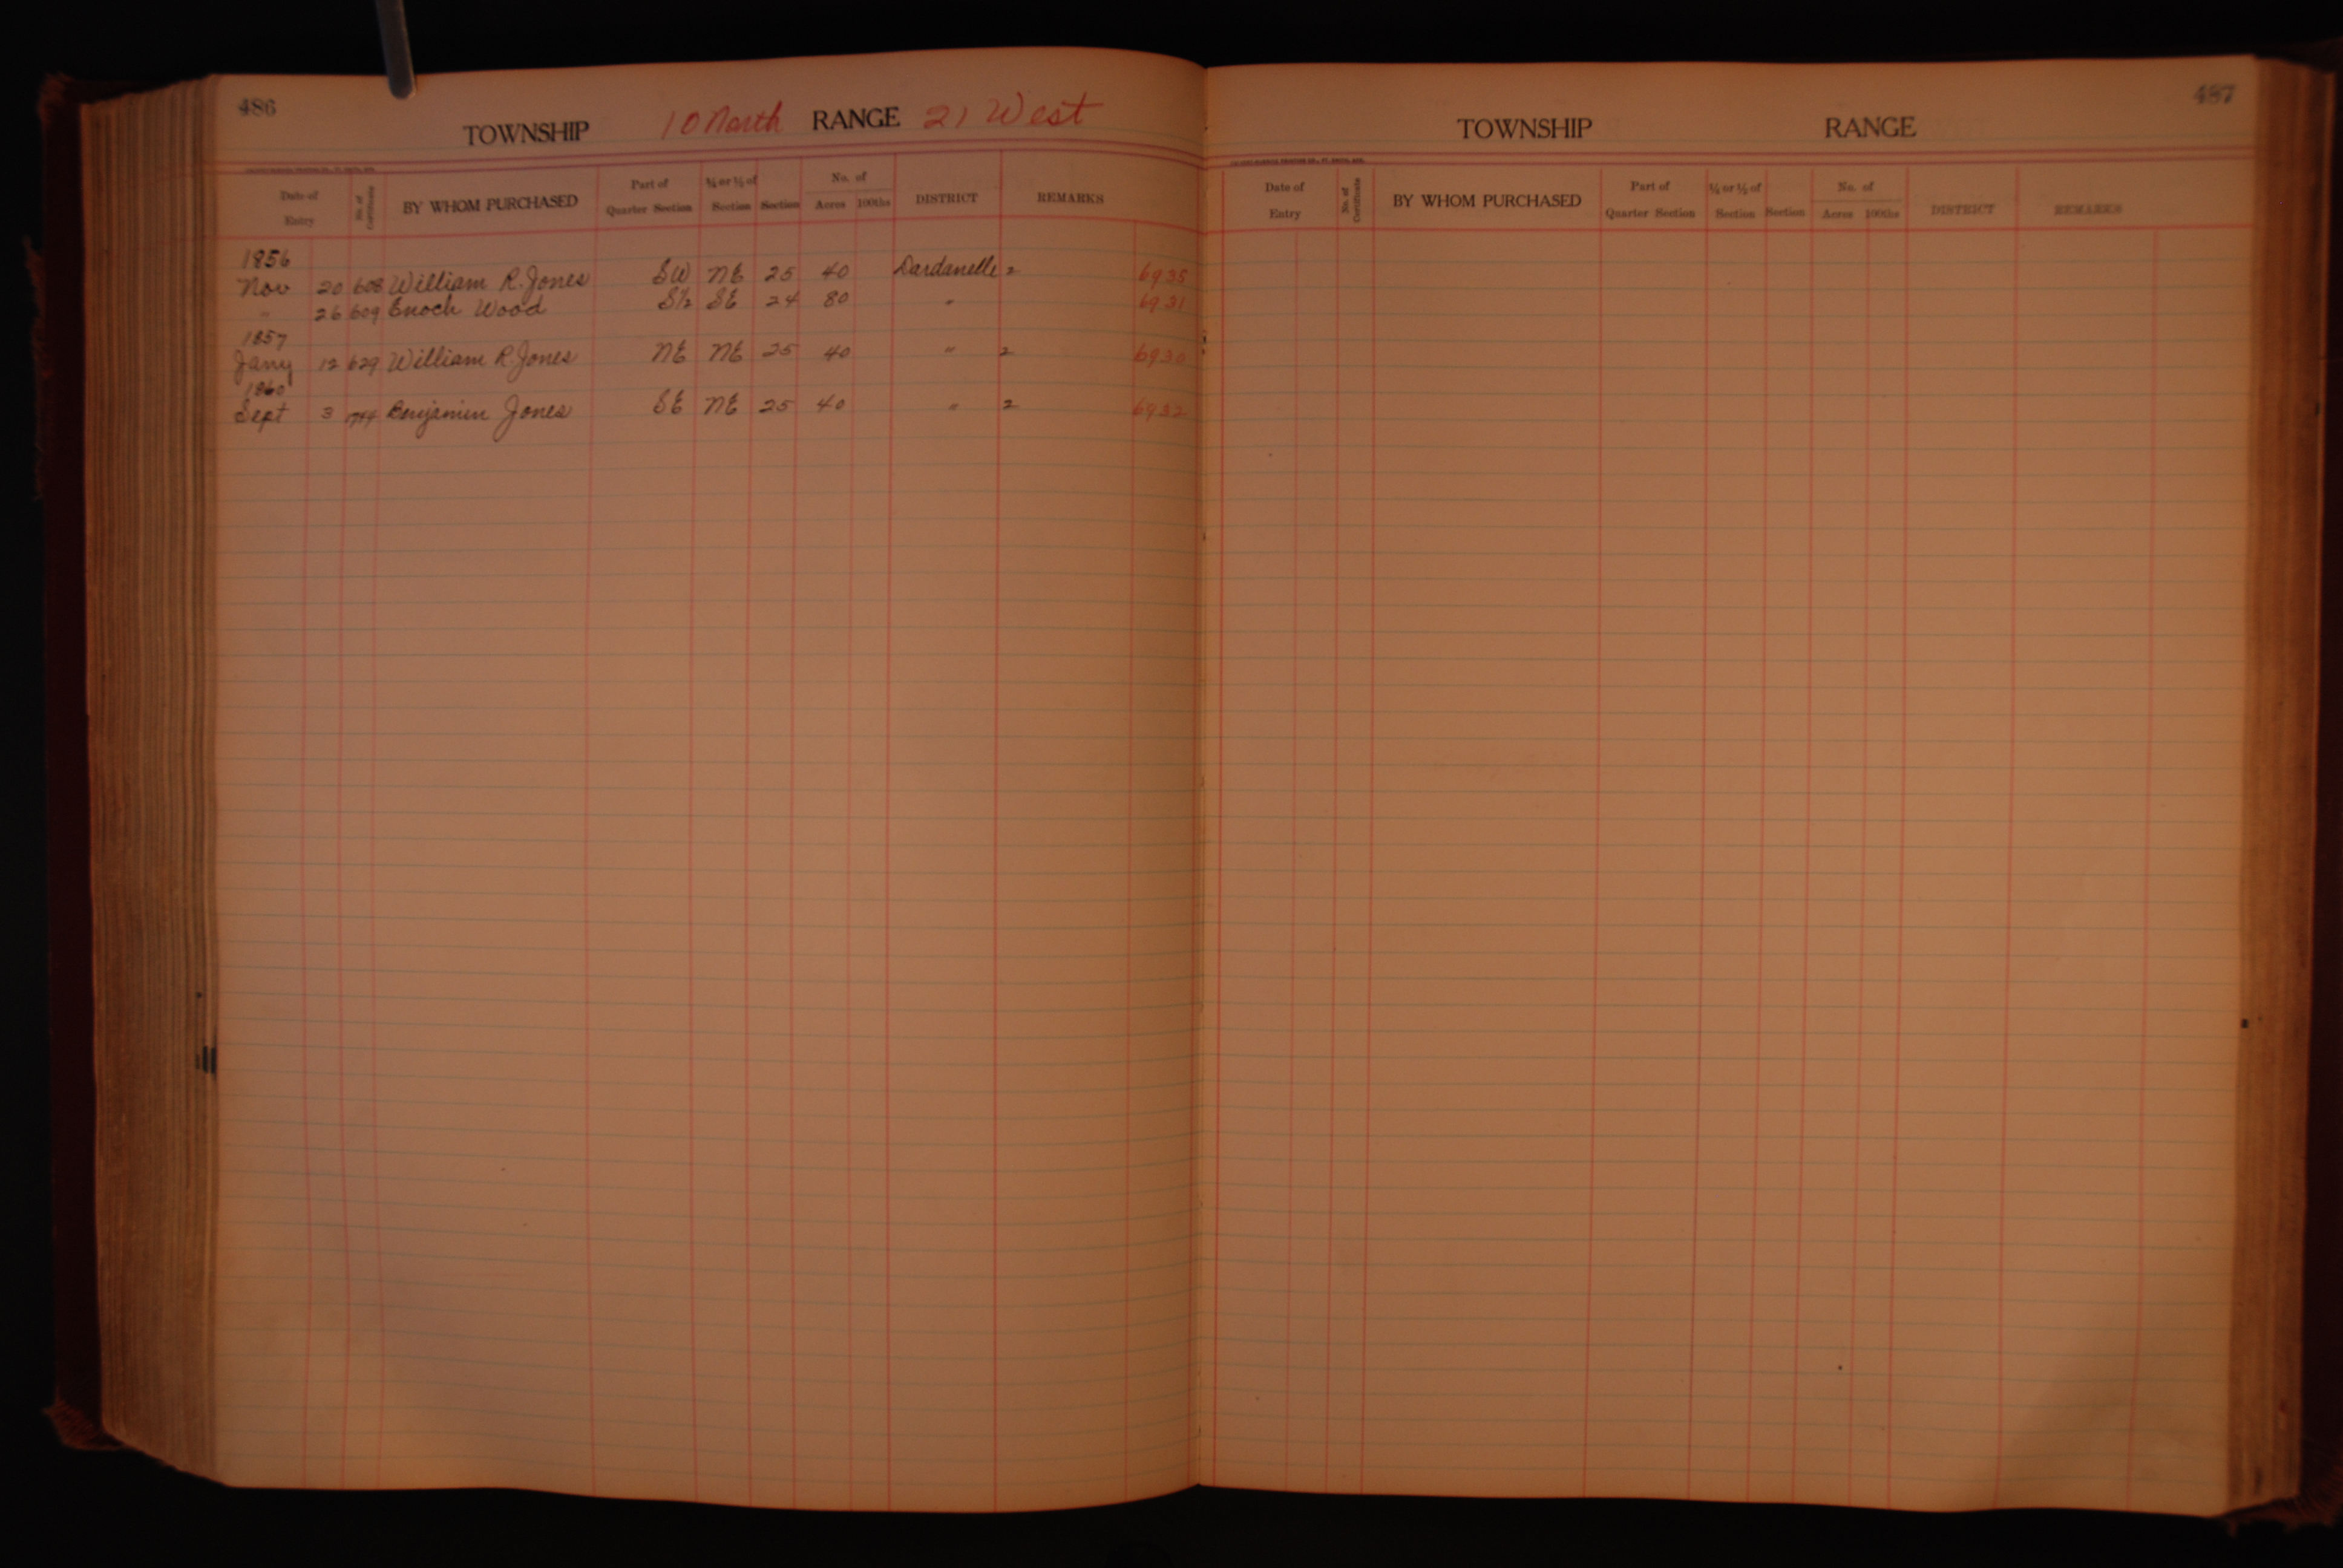 486
TOWNSHIP 10 North RANGE 21 West
Date of Entry No. of Certificate BY WHOM PURCHASED Part of Quarter Section ¼ or ½ of Section Section No. of Acres 100ths DISTRICT REMARKS
1856
Nov 20 608 William R. Jones SW NE 25 40 Dardanelle 2 6935
" 26 609 Enoch Wood S½ SE 24 80 " 6931
1857
Jany 12 629 William R. Jones NE NE 25 40 " 2 6930
1860
Sept 3 Benjamin Jones SE NE 25 40 " 2 6932
487
TOWNSHIP RANGE
Date of Entry No. of Certificate BY WHOM PURCHASED Part of Quarter Section ¼ or ½ of Section Section No. of Acres 100ths DISTRICT REMARKS